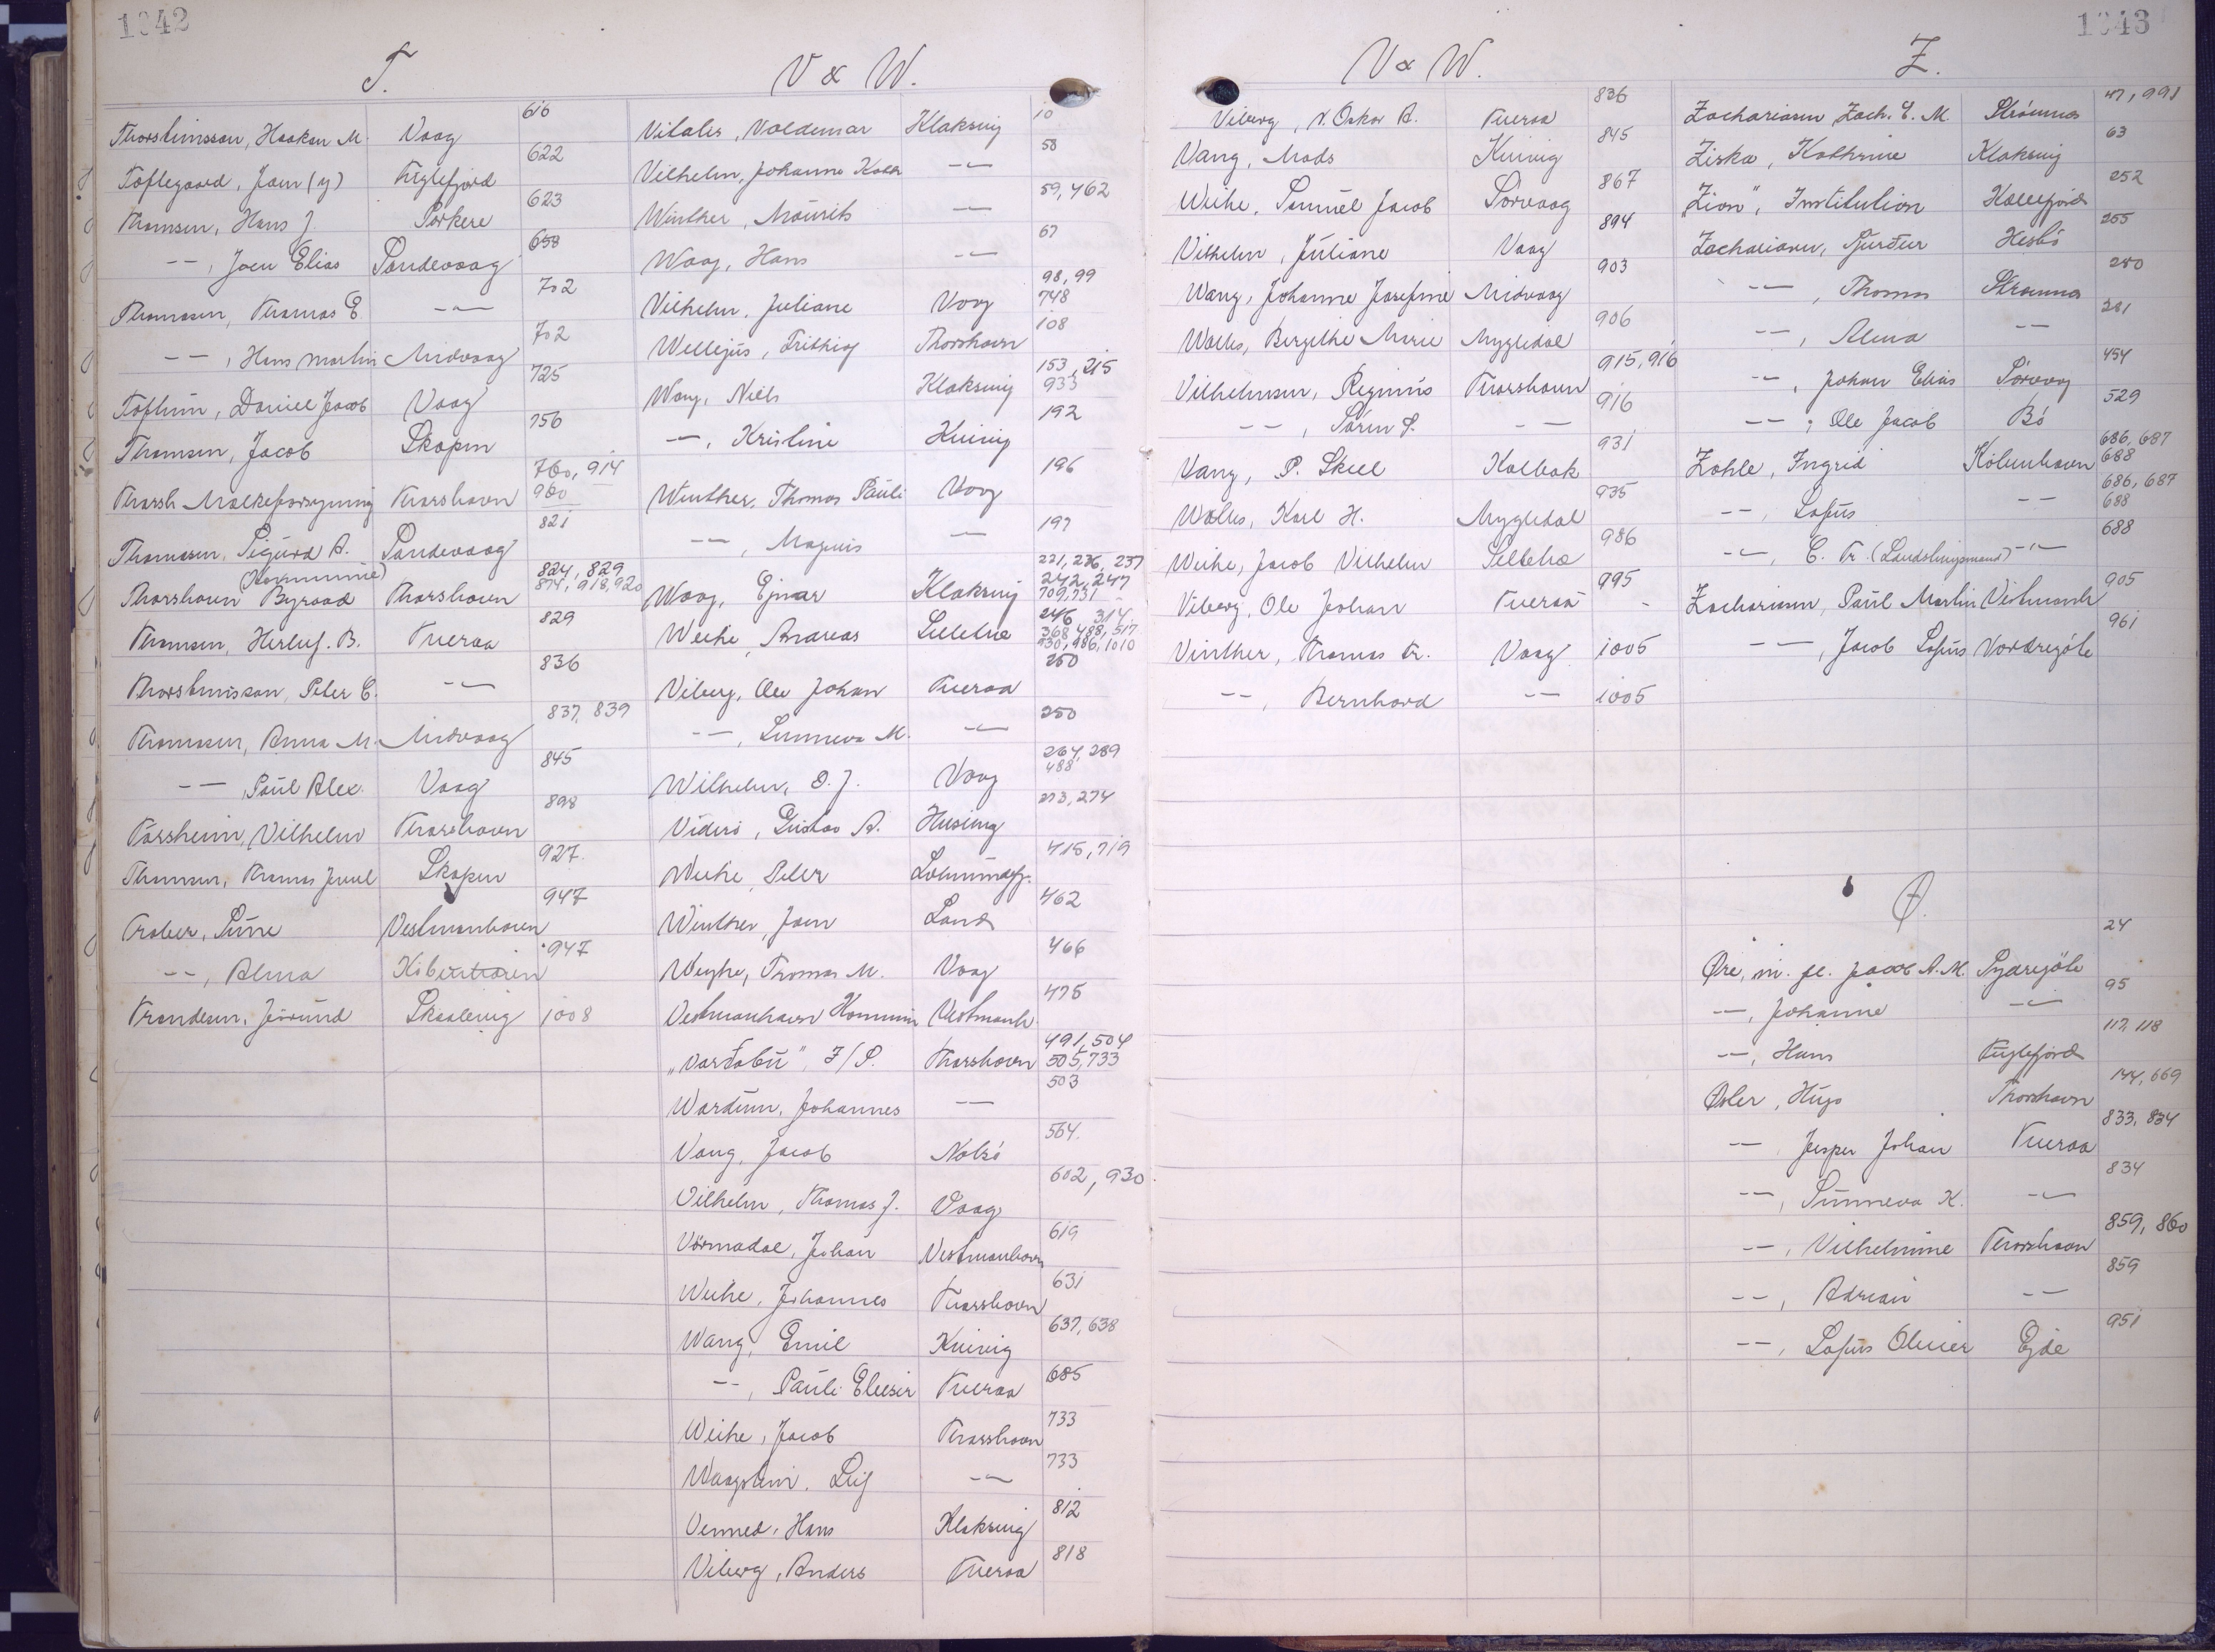 1042
T.
Thorsteinsson, Haakon M. Vaag 616
Toftegaard, Joen (y) Fuglefjord 622
Thomsen, Hans J. Porkere 623
-"-, Joen Elias Sandevaag 658
Thomasen, Thomas E -"- 702
-"-, Hans Martin Midvaag 702
Toftum, Daniel Jacob Vaag 725
Thomsen, Jacob Skopen 756
Thorsh. Mælkeforsyning Thorshavn 760, 914 960
Thomasen, Sigurd A. Sandevaag 821
Thorshavn Byraad (Kommune) Thorshavn 824, 829 874, 918, 920
Thomsen, Herluf. B. Tveraa 829
Thorsteinsson, Peter C. -"- 836
Thomasen, Anna M. Midvaag 837, 839
-"-, Paul Alex. Vaag 845
Tórsheim, Vilhelm Thorshavn 898
Thomsen, Thomas Juul Skopen 927
Traber, Sune Vestmanhavn 947
-"-, Alma 947
Trondesen, Jörund Skaalevig 1008
V & W.
Vitalis, Valdemar Klaksvig 10
Vilhelm, Johanne Kathr -"- 58
Winther, Mourits -"- 59, 462
Waag, Hans -"- 67
Vilhelm, Juliane Vaag 98, 99 748
Wellejus, Frithiof Thorshavn 108
Wang, Niels Klaksvig 153, 215 933
-"-, Kristine Kvivig 192
Winther, Thomas Pauli Vaag 196
-"-, Magnus -"- 197
Waag, Ejnar Klaksvig 221, 236, 237 242, 247 709, 731
Weihe, Andreas Selletræ 246 314 368, 488, 517 930, 986, 1010
Viberg, Ole Johan Tveraa 250
-"-, Sunneva M. -"- 250
Wilhelm, D. J. Vaag 264, 289 488
Viderö, Gustav A. Husevig 273, 274
Weihe, Peter 415, 719
Winther, Joen Sand 462
Weyhe, Thomas M. Vaag 466
Vestmanhavn Kommune Vestmanh. 475
"Varðabú", I/S. Thorshavn 491, 504 505, 733
Wardum, Johannes -"- 503
Vang, Jacob Nolsö 564.
Vilhelm, Thomas J. Vaag 602, 930
Vörmadal, Johan Vestmanhavn 619
Weihe, Johannes Thorshavn 631
Wang, Emil Kvivig 637, 638
-"-, Pauli Elieser Tveraa 685
Weihe, Jacob Thorshavn 733
Waagstein, Leif -"- 733
Venned, Hans Klaksvig 812
Viberg, Anders Tveraa 818
1043
V & W.
Viberg, V. Oskar A. Tveraa 836
Vang, Mads Kvivig 845
Weihe, Samuel Jacob Sörvaag 867
Vilhelm, Juliane Vaag 894
Wang, Johanne Josefine Midvaag 903
Wolles, Bergithe Marie Mygledal 906
Vilhelmsen, Reginus Thorshavn 915, 916
-"-, Sören P. -"- 916
Vang, P. Skeel Kolbak 931
Wolles, Karl H. Mygledal 935
Weihe, Jacob Vilhelm Selletræ 986
Viberg, Ole Johan Tveraa 995
Vinther, Thomas Fr. Vaag 1005
-"-, Bernhard -"- 1005
Z.
Zachariasen, Zach. E. M. Strömnæs 47, 991
Ziska, Kathrine Klaksvig 63
"Zion", Institution Kollefjord 252
Zachariasen, Sjurdur Husbö 255
-"-, Thomas Strømnæs 280
-"-, Alma -"- 281
-"-, Johan Elias Sörvaag 454
-"-, Ole Jacob Bö 529
Zahle, Ingrid Köbenhavn 686, 687 688
-"-, Sofus -"- 686, 687 688
-"-, C. Fr. (Landstingsmand) -"- 688
Zachariasen, Paul Martin Vestmanh 905
-"-, Jacob Sofus Nordregöte 961
Ø.
Øre, m. fl. Jacob A. M. Sydregöte 24
-"-, Johanne -"- 95
-"-, Hans Fuglefjord 117, 118
Øster, Hugo Thorshavn 144, 669
-"-, Jesper Johan Tveraa 833, 834
-"-, Sunneva K. -"- 834
-"-, Vilhelmine Thorshavn 859, 860
-"-, Adrian -"- 859
-"-, Sofus Oliver Ejde 951